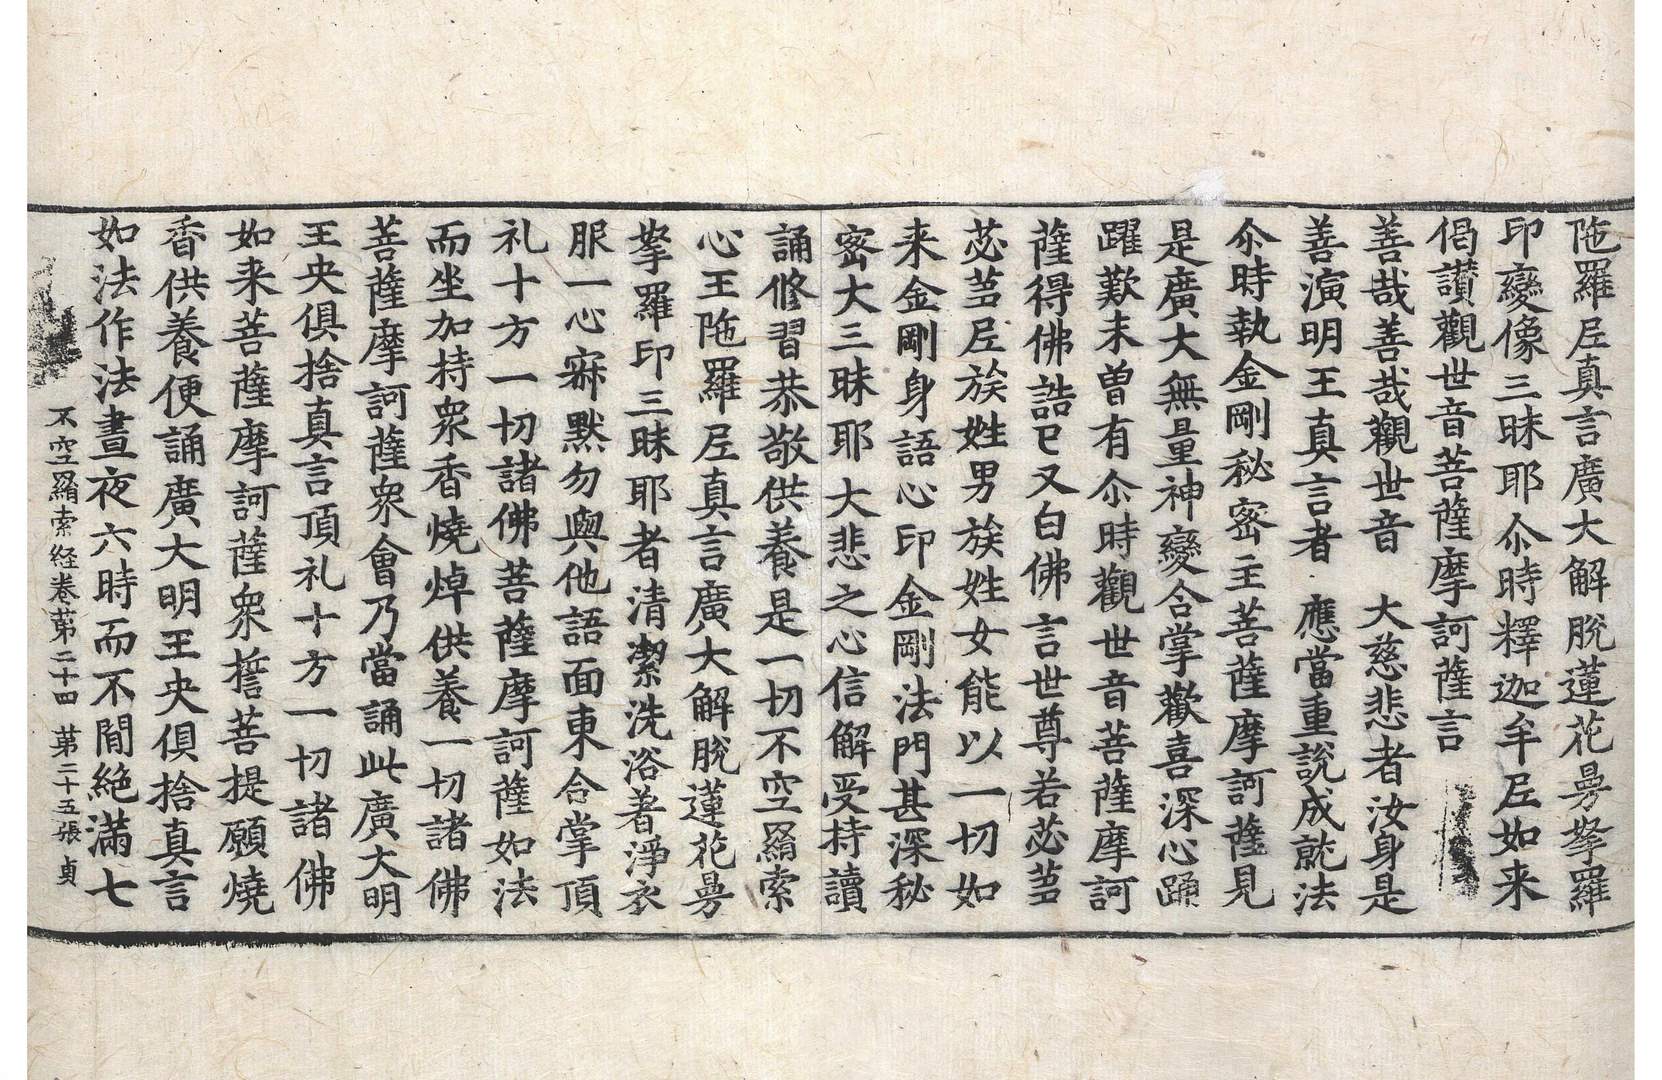 陁羅𡰱真言廣大解脫蓮花曼拏羅
印變像三昧耶尒時釋迦牟𡰱如来
偈讃觀世音菩薩摩訶薩言
善哉善哉觀世音　大慈悲者汝身是
善演明王真言者　應當重說成就法
尒時執金剛秘密主菩薩摩訶薩見
是廣大無量神變合掌歡喜深心踊
躍歎未曽有尒時觀世音菩薩摩訶
薩得佛誥已又白佛言世尊若苾芻
苾芻𡰱族姓男族姓女能以一切如
来金剛身語心印金剛法門甚深秘
密大三昧耶大悲之心信解受持讀
誦修習恭敬供養是一切不空羂索
心王陁羅𡰱真言廣大解脫蓮花曼
拏羅印三昧耶者清潔洗浴著淨衣
服一心寂默勿與他語面東合掌頂
礼十方一切諸佛菩薩摩訶薩如法
而坐加持衆香燒焯供養一切諸佛
菩薩摩訶薩衆會乃當誦此廣大明
王央俱捨真言頂礼十方一切諸佛
如来菩薩摩訶薩衆捪菩提願燒
香供養便誦廣大明王央俱捨真言
如法作法晝夜六時而不閒絶滿七
不空羂索経卷苐二十四　第二十五張　貞